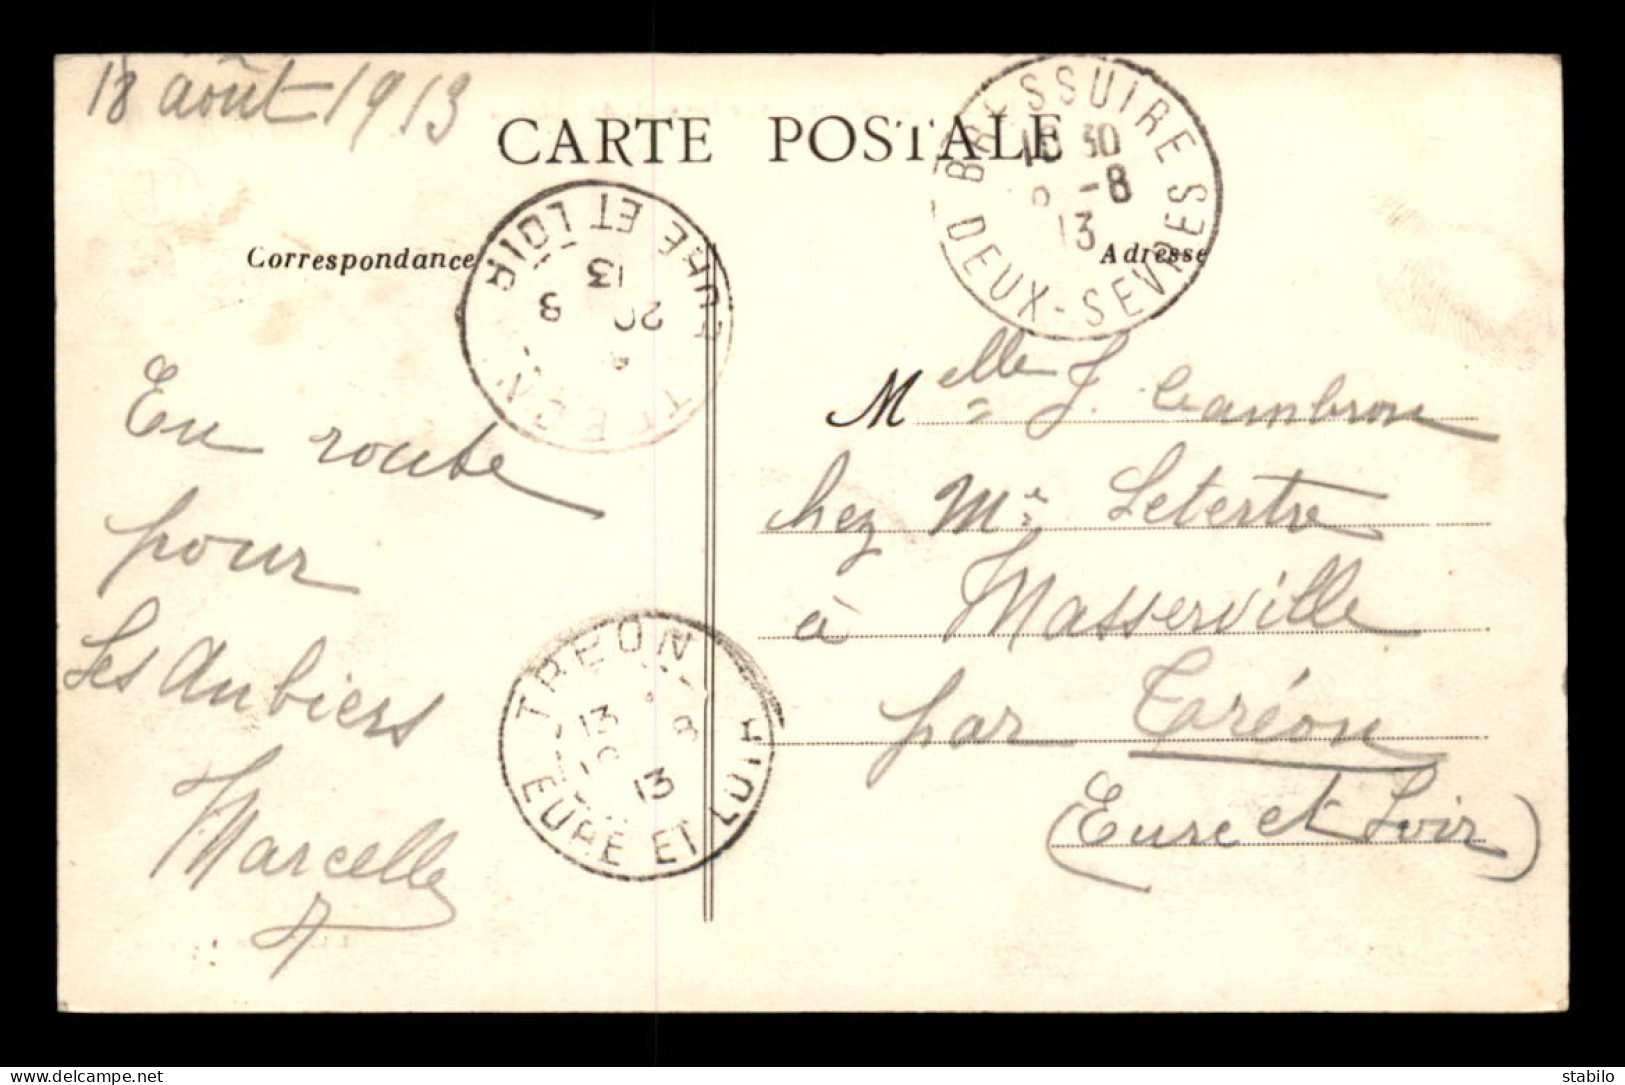 18 août 1913
CARTE POSTALE
BRESSUIRE
30
-8
13
DEUX-SEVRES
EURE ET LOIR
13
20 8
TREON
Correspondance
Adresse
Melle J. Cambron
chez Me Letertre
à Masserville
par Tréon
(Eure et Loir)
En route
pour
Les Aubiers
Marcelle
TREON
13 8
13
EURE ET LOIR
delcampe.net
stabilo